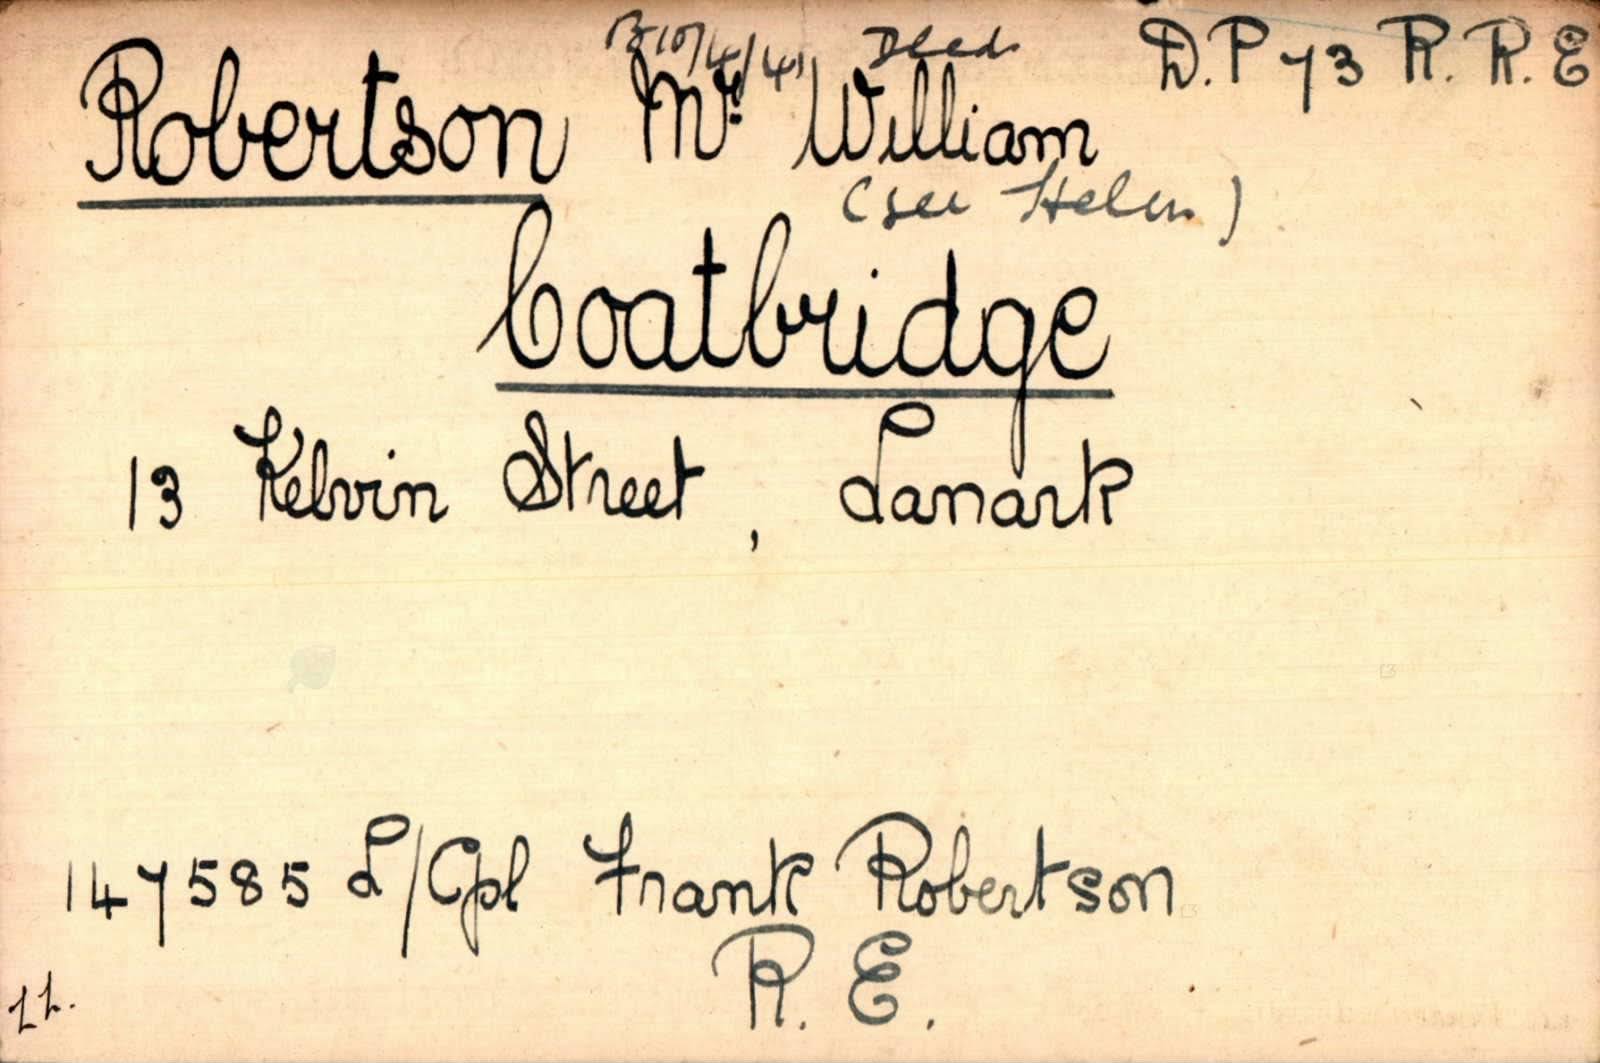 B10/4/41 Deed. D.P 73 R. R. E
Robertson Mr. William
(see Helen)
Coatbridge
13 Kelvin Street, Lanark
147585 L/Cpl Frank Robertson
R. E.